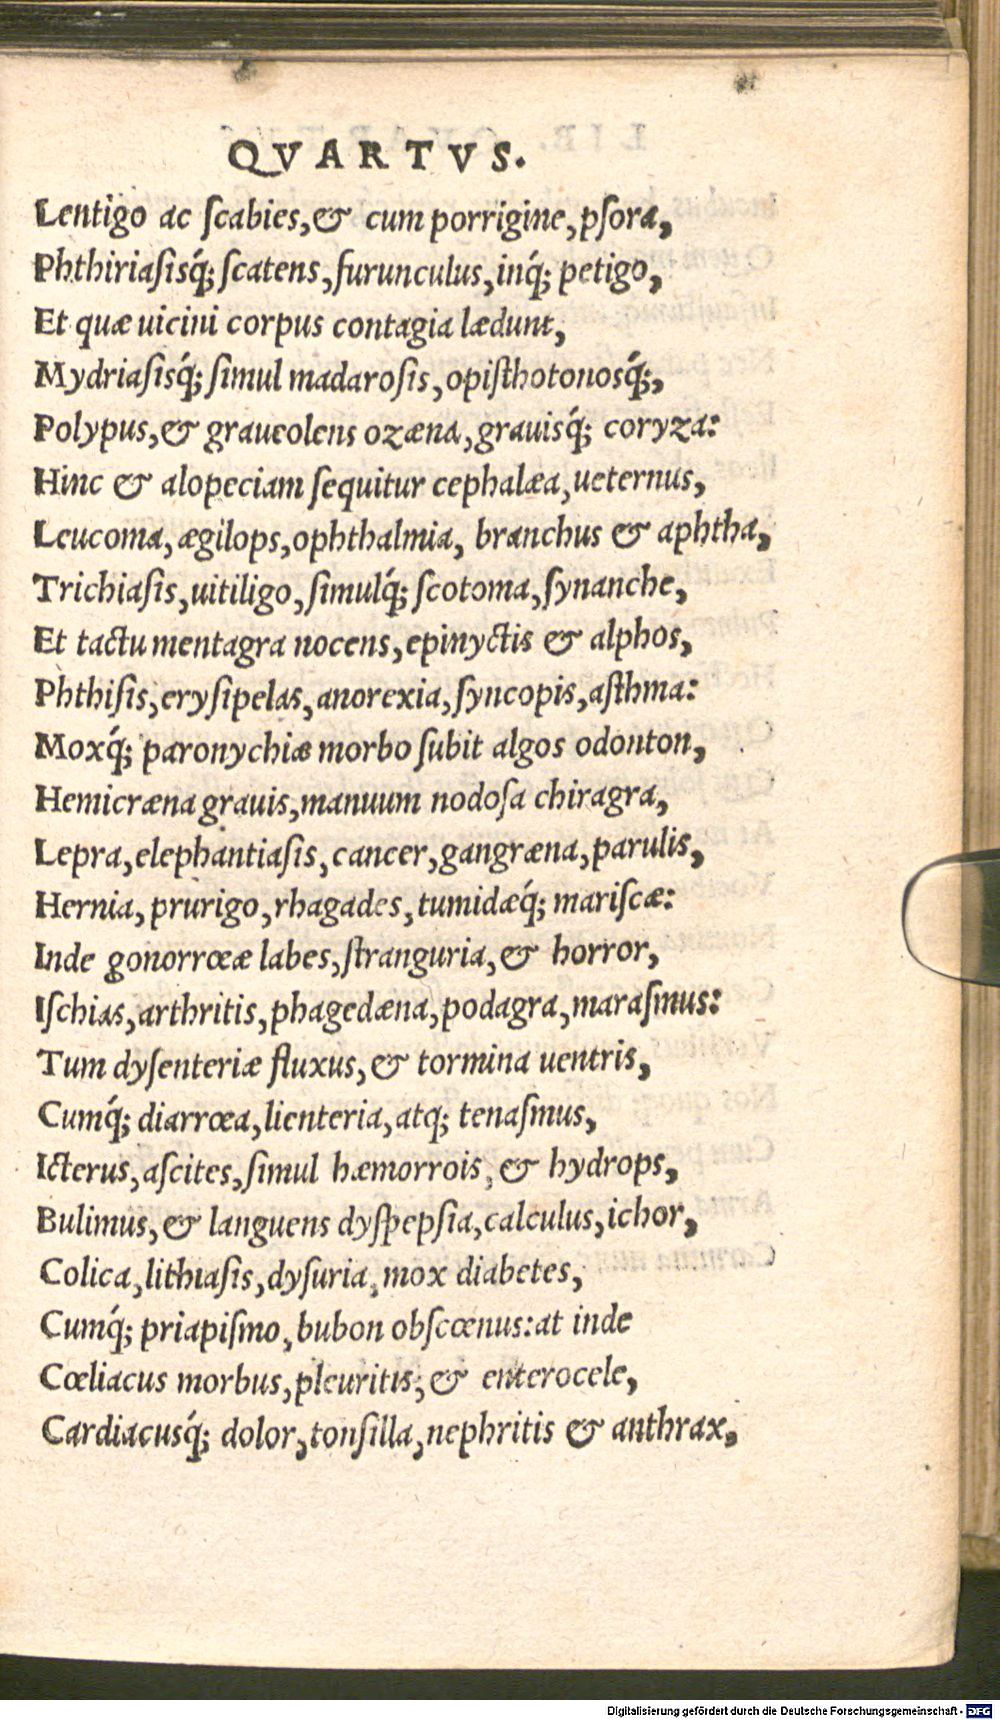 QVARTVS.
Lentigo ac ſcabies,& cum porrigine,pſora,
Phthiriaſisq́; ſcatens,furunculus,inq́; petigo,
Et quæ uicini corpus contagia lædunt,
Mydriaſisq́; ſimul madaroſis,opiſthotonosq́;,
Polypus,& graueolens ozæna,grauisq́; coryza:
Hinc & alopeciam ſequitur cephalæa,ueternus,
Leucoma,ægilops,ophthalmia, branchus & aphtha,
Trichiaſis,uitiligo,ſimulq́; ſcotoma,ſynanche,
Et tactu mentagra nocens,epinyctis & alphos,
Phthiſis,eryſipelas,anorexia,ſyncopis,aſthma:
Moxq́; paronychiæ morbo ſubit algos odonton,
Hemicræna grauis,manuum nodoſa chiragra,
Lepra,elephantiaſis,cancer,gangræna,parulis,
Hernia,prurigo,rhagades,tumidæq́; mariſcæ:
Inde gonorrœæ labes,ſtranguria,& horror,
Iſchias,arthritis,phagedæna,podagra,maraſmus:
Tum dyſenteriæ fluxus,& tormina uentris,
Cumq́; diarrœa,lienteria,atq; tenaſmus,
Icterus,aſcites,ſimul hæmorrois,& hydrops,
Bulimus,& languens dyſpepſia,calculus,ichor,
Colica,lithiaſis,dyſuria,mox diabetes,
Cumq́; priapiſmo,bubon obſcœnus:at inde
Cœliacus morbus,pleuritis,& enterocele,
Cardiacusq́; dolor,tonſilla,nephritis & anthrax,
Digitalisierung gefördert durch die Deutsche Forschungsgemeinschaft - DFG